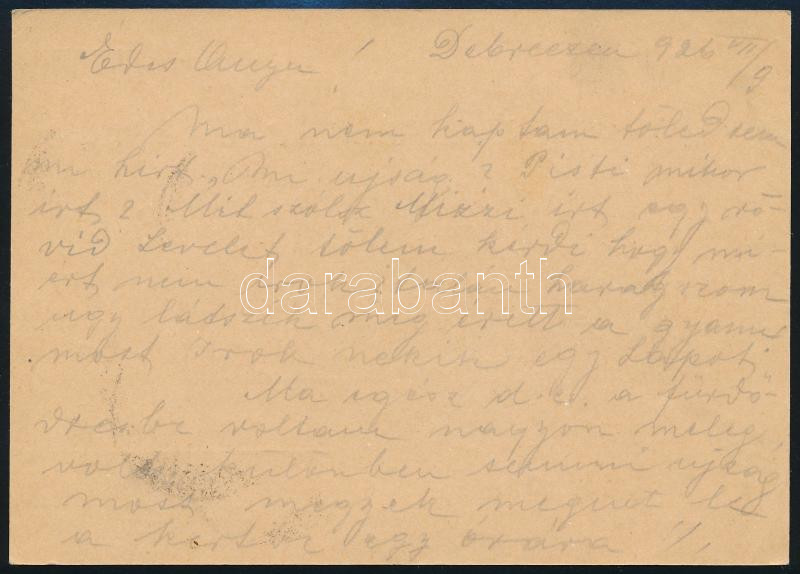 Edes Anyu! Debreczen 926 VII/9
Ma nem kaptam tőled sem
mi hirt. Mi ujság? Pisti mikor
irt? Mit szólsz Mizzi irt egy rö-
vid Levelet tőlem kérdi hog mi-
ert nem irok haragszom
ugy látszik meg a gyanu
most Irok nekik egy Lapot.
Ma egész d.e. a fürdő-
dresbe voltam nagyon meleg
volt különben semmi ujság
most megyek megint le
a kertbe egy órára!
darabanth